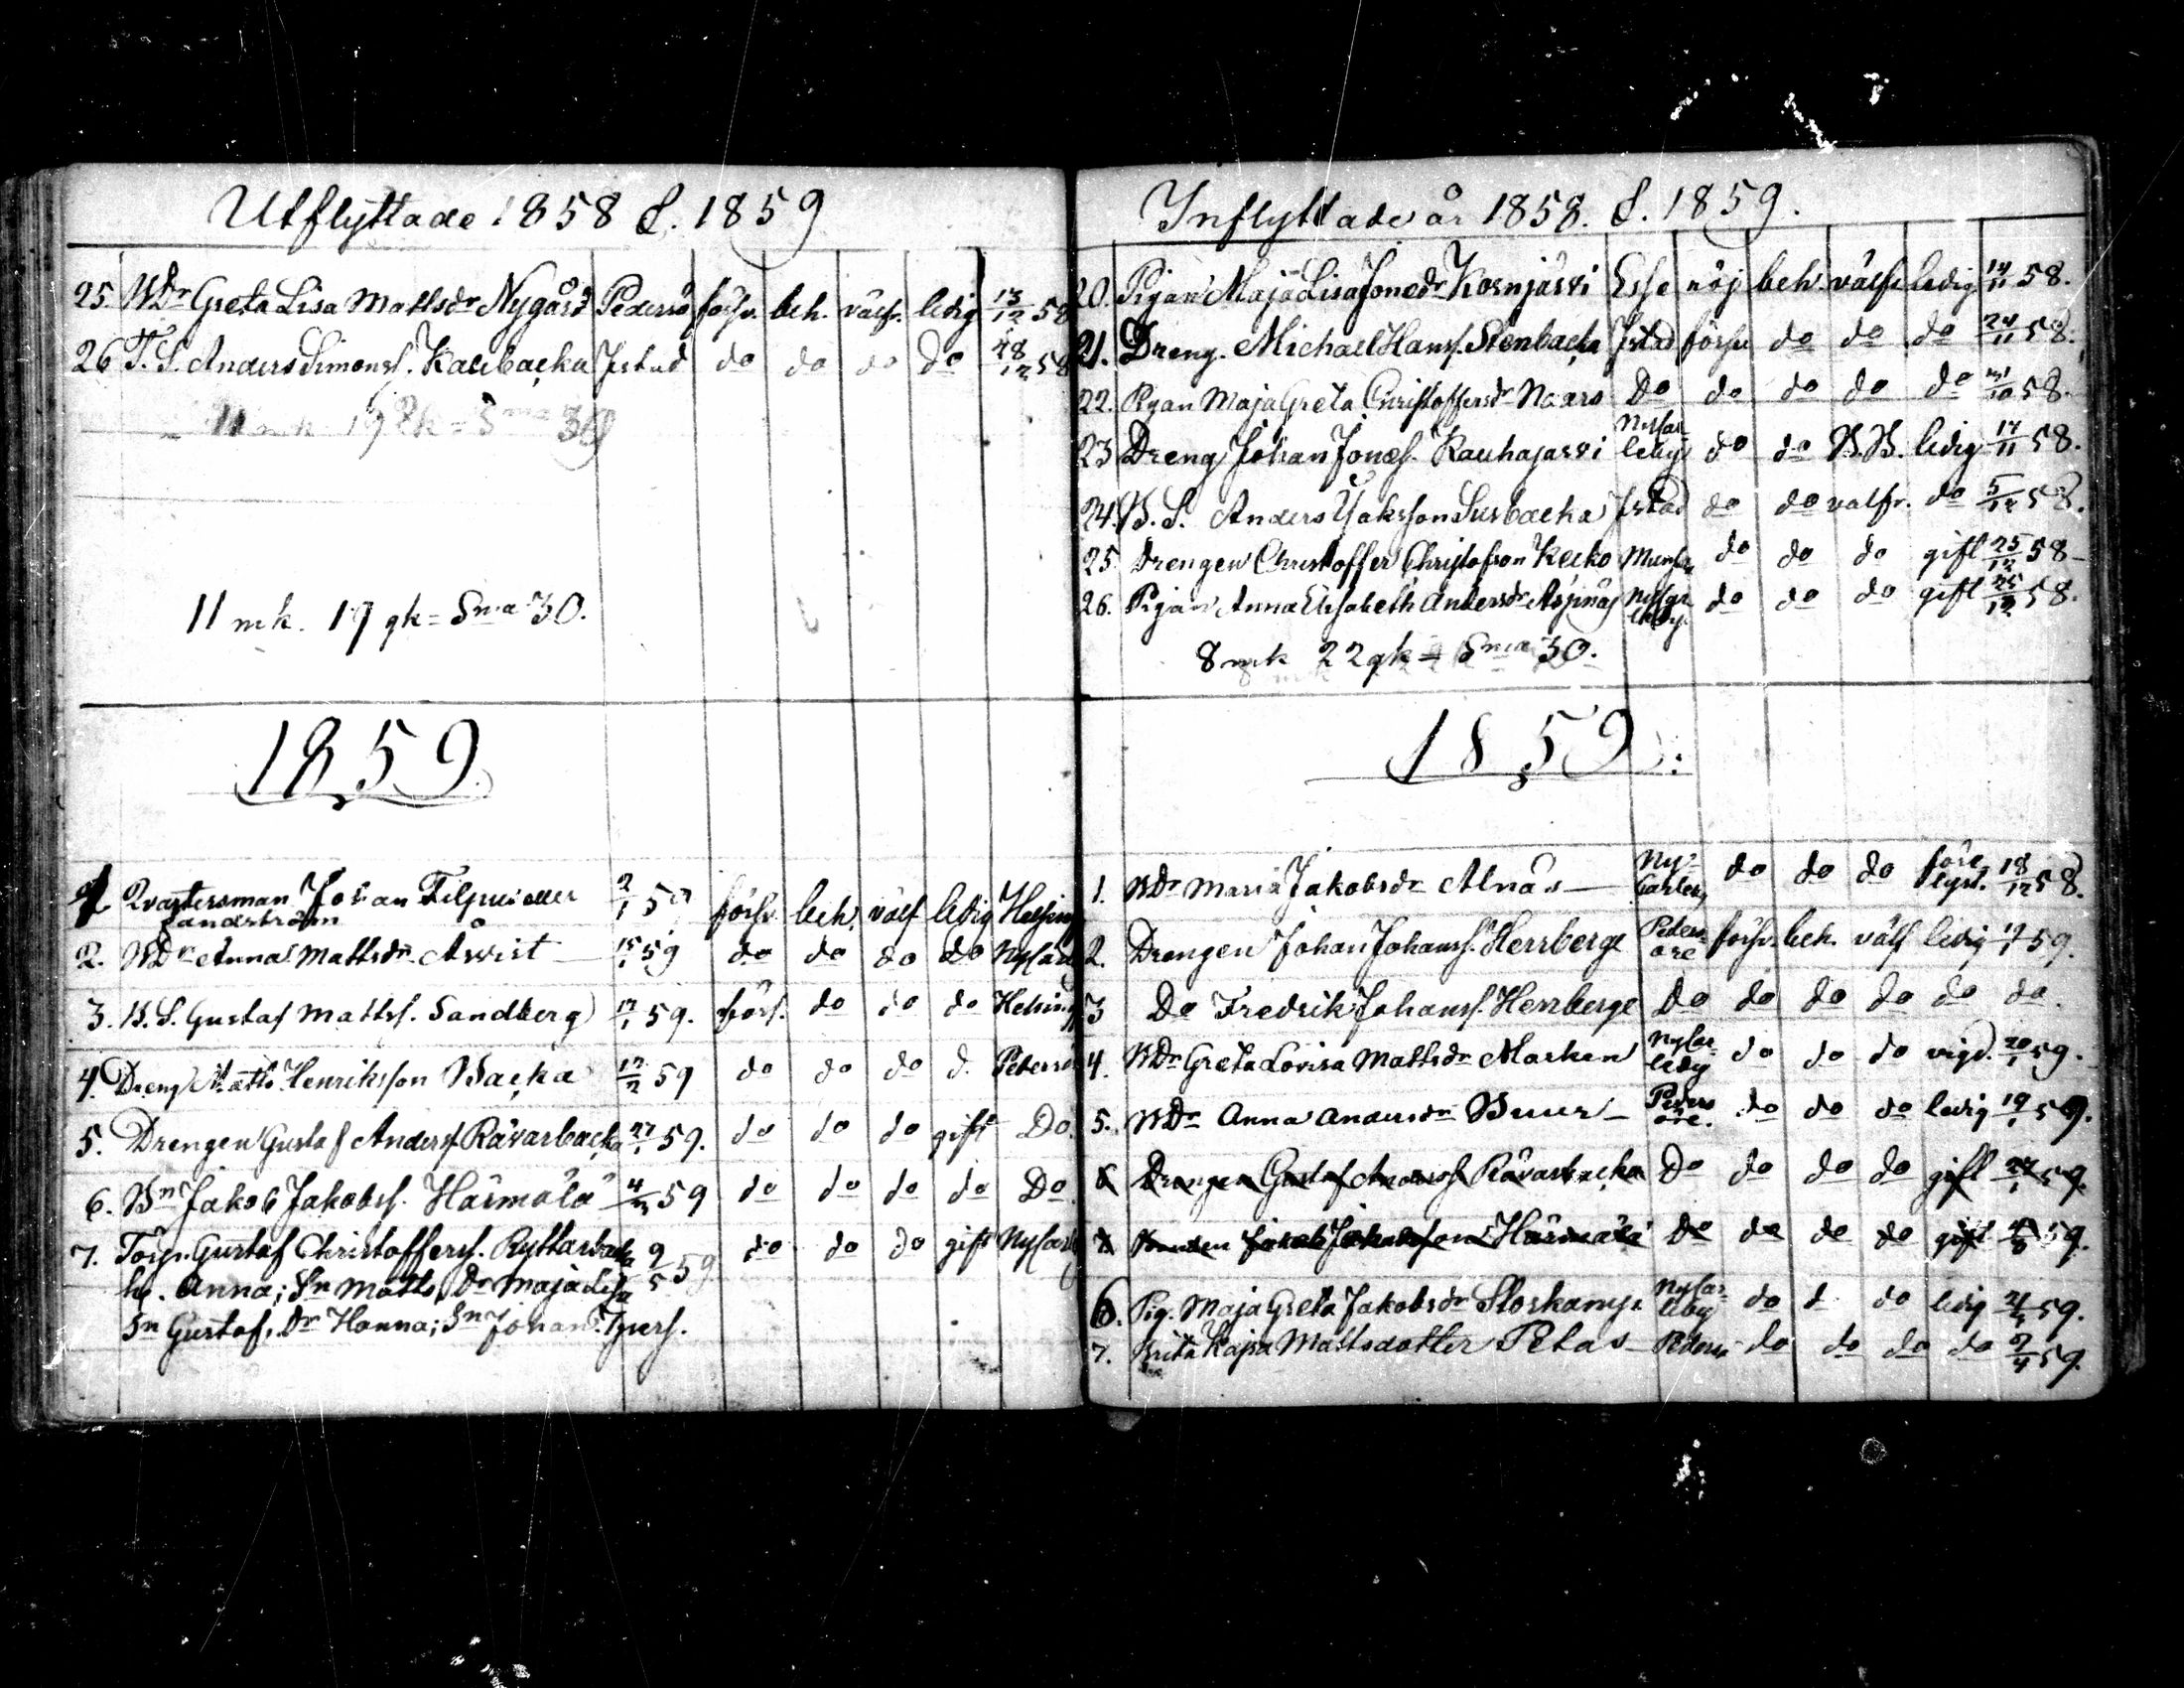 Utflyttade 1858 & 1859
25. WDr Greta Lisa Mattsdr Nygård Pedersö försv. beh. välfr. ledig 13/12 58
26 T. S. Anders Simonss. Kaubacka Jstad do do do do 28/12 58
11 mk. 19 qk = Sma 30
11 mk. 19 qk = Sma 30.
1859.
1 Qvartersman Johan Filpus eller 2/1 59 försv. beh. välf ledig Helsing
Sandström
2. WDr Anna Mattsdr Åwist 15/1 59 do do do do Nykarl
3. B. S. Gustaf Mattss. Sandberg 17/1 59. förs. do do do Helsingf
4. Dreng Matts Henriksson Backa 17/2 59 do do do d. Pedersö
5. Drengen Gustaf Anderss. Rävarbacka 27/1 59. do do do gift Do.
6. Bn Jakob Jakobss. Härmälä 4/3 59 do do do do Do
7. Torp. Gustaf Christofferss. Ryttarbacka 9/5 59 do do do gift Nykarl
h. Anna; Sn Matts, Dr Maja Lisa
Sn Gustaf, Dr Hanna; Sn Johan. 7 pers.
Inflyttade år 1858. & 1859.
20. Pigan Maja Lisa Jonedr Kornjärvi Esse nöj beh. välfr ledig 14/11 58.
21. Dreng. Michael Hanss. Stenbacka Jstad försv do do do 24/11 58.
22. Pigan Maja Greta Christoffersdr Naars Do do do do do 31/10 58.
23 Dreng Johan Jonæs. Rauhajarvi Nykar-
leby do do B.B. ledig 17/11 58.
24. B. S. Anders Jaksson Susbacka Jstad do do valfr. do 5/12 58.
25. Drengen Christoffer Christofson Kecko Munsa do do do gift 25/12 58
26. Pigan Anna Elisabeth Andersdr Aspnäs Nykar-
leby. do do do gift 25/12 58.
8 mk 22 qk = Sma 30.
1859:
1. WDr Maria Jakobsdr Alnäs Ny-
Carleby do do do före
lyst. 18/12 58.
2. Drengen Johan Johanss. Herrberge Peders-
öre försv. beh. välf ledig 17/1 59.
3 Do Fredrik Johanss. Herrberge Do do do do do do.
4. WDr Greta Lovisa Mattsdr Marken Nykar-
leby do do do vigd. 20/1 59.
5. WDr Anna Andersdr Buur Peders
öre. do do do ledig 19/1 59.
6 Drengen Gustaf Anderss. Rävarbacka Do do do do gift 27/1 59.
7 Bonden Jakob Jakobsson Härmälä Do do do do gift 4/3 59.
6. Pig. Maja Greta Jakobsdr Storkamp Nykar-
leby do d do ledig 21/3 59.
7. Brita Kajsa Mattsdotter Petas Peders do do do do 9/4 59.